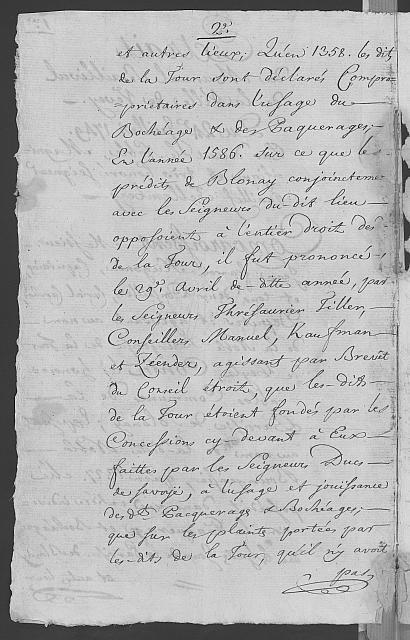 2.e
et autres lieux; Qu'en 1358. les dits
de la Tour sont déclarés Compro-
-priétaires dans l'usage du
Bochéage & des Paquerages;
En l'année 1586. sur ce que les
prédits de Blonay conjoincteme
avec les Seigneurs du-dit lieu
opposoient à l'entier droit des
de la Tour, il fut prononcé
le 29.e Avril de-ditte année, par
les Seigneurs Thrésaurier Tiller,
Conseillers Manuel, Kaufman
et Zéender, agissant par Brevêt
du Conseil étroit, que les-dits
de la Tour étoient fondés par les
Concessions cy-devant à Eux
faittes par les Seigneurs Ducs
de savoye, à l'usage et jouissance
des dts Pacquerages & Bochéages;
que sur les plaints portées par
les-dits de la Tour, qu'il n'y avoit
pas